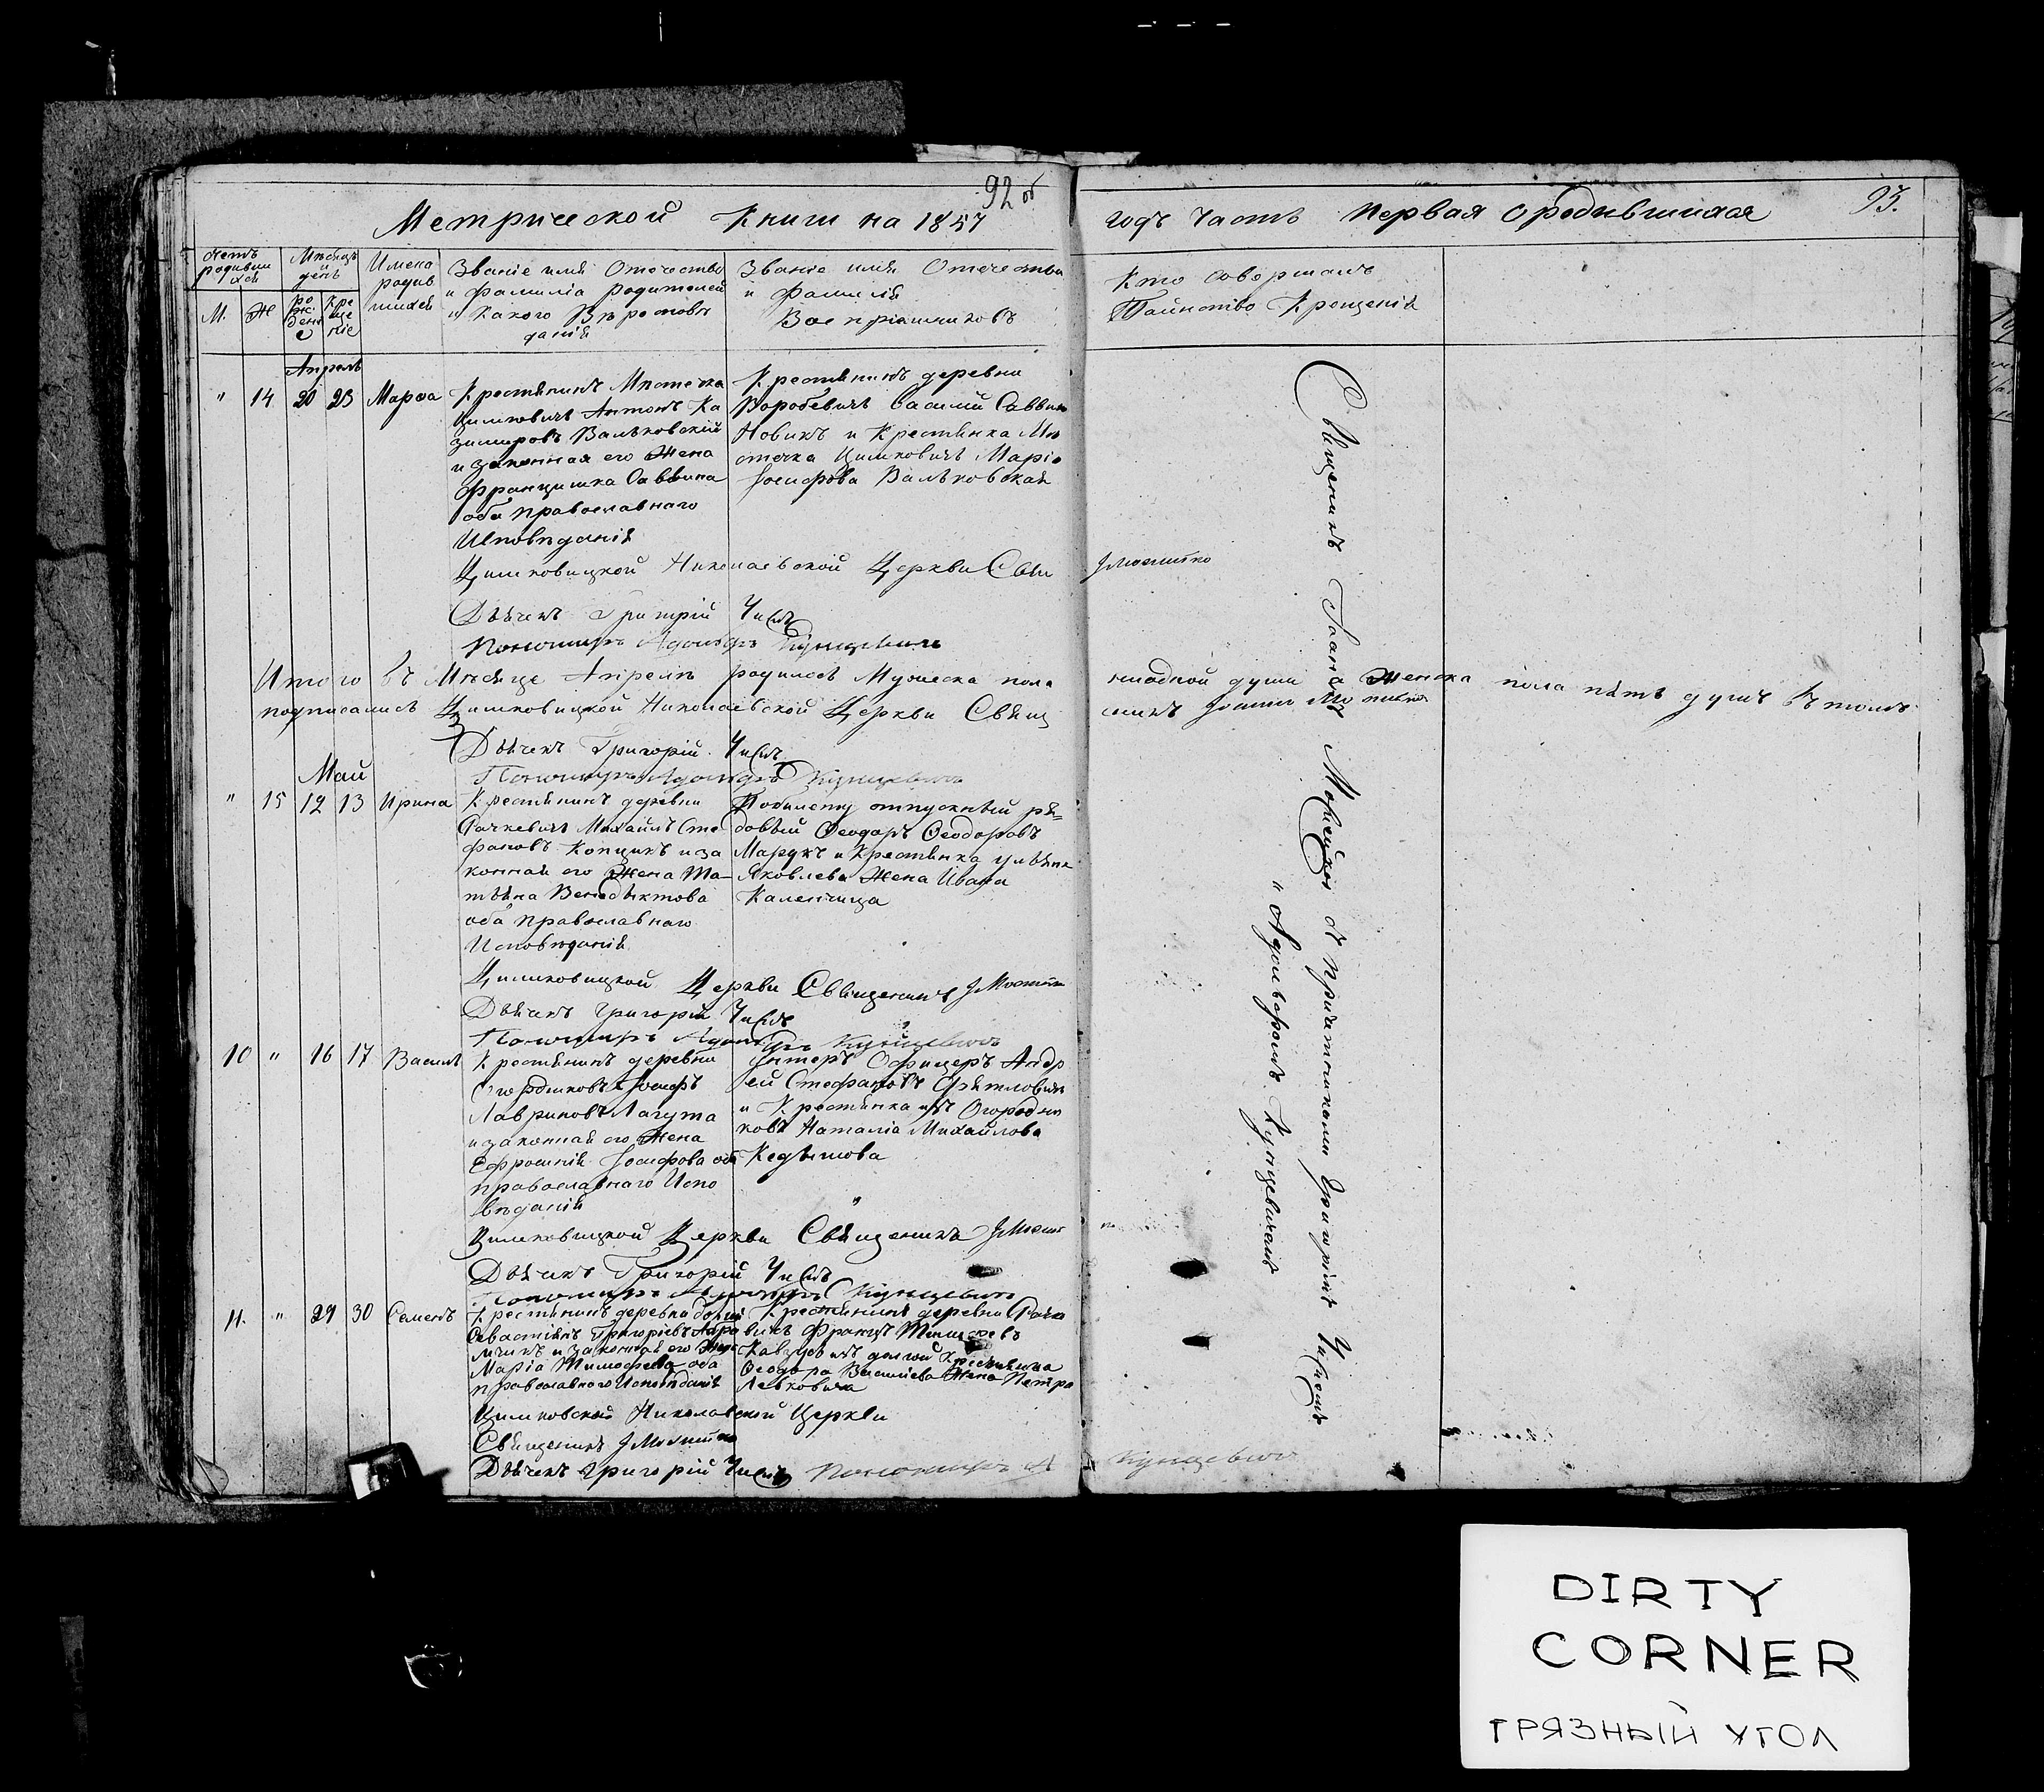 92 об
Метрической Книги на 1857
годъ Часть первая о родившихся
93.
Счетъ родивши
хся
Мѣсяцъ
и
день
Имена
родив
шихся
Званіе имя Отечество
и Фамилія родителей
и Какого Вѣроисповѣ
данія
Званіе имя Отечество
и Фамилія
Воспріемниковъ
М.
Ж
ро
жде
ні
е
Кре
ще
ніе
Кто Совершалъ
Таинство Крещенія
Апрель
" 14 20 23 Марѳа
Крестянинъ Мястечка
Цимковичь Антонъ Ка
зимировъ Вальковскій
и законная его Жена
Францишка Саввина
оба православнаго
Исповѣданія
Крестянинъ деревни
Воробевичь Василій Саввин
Новикъ и Крестянка Мя
стечка Цимковичь Марія
Іосифова Вальковская
Цимковицкой Николаевской Церкви Свя
Дьячекъ Григорій
Пономарь Адольфъ Кунцевичь
Итого въ Мѣсяце Апрелѣ родилось Мужеска пола
ниодной души а Женска пола пять душъ Въ томъ
подписались Цимковицкой Николаевской Церкви Свящ
Дьячекъ Григорій
Пономарь Адольфъ Кунцевичь
Май
" 15 12 13 Ирина
Крестянинъ деревни
Рачкевичь Михаилъ Сте
фановъ Копцикъ и за
конная его Жена Та-
тьяна Венедыктова
оба православнаго
Исповѣданія
Побилету отпускный ря=
довый Ѳеодоръ Ѳеодоровъ
Марукъ и Крестянка ульяна
Яковлева Жена Ивана
Каленчица
Цимковицкой Церкви Священикъ
Дьячекъ Григорій
Пономарь Адольфъ Кунцевичь
10 " 16 17 Василь
Крестянинъ деревни
Огородниковъ Іосифъ
Лавриновъ Лагута
и законная его Жена
Ефросинія Іосифова оба
православнаго Испо
вѣданія
Унтеръ Офицеръ Андр
ей Стефановъ
и Крестянка изъ Огородни
ковъ Наталія Михайлова
Кедышова
Цимковицкой Церкви Священикъ
Дьячекъ Григорій
Пономарь Адольфъ Кунцевичь
11. " 29 30 Семенъ
Крестянинъ деревни
Севастіянъ Григоріевъ
и законная его Жена
Марія Тимофеева оба
православнаго Исповѣданія
Крестянинъ деревни Рачк
вичь Францъ
Крестянка
Ѳеодора Василіева Жена Петра
Левковича
Цимковской Николаевской Церкви
Священикъ
Дьячекъ Григорій
Пономарь А Кунцевичь
Священикъ Іоаннъ съ Причетниками Григоріемъ
" Адольфомъ Кунцевичемъ
DIRTY
CORNER
ГРЯЗНЫЙ УГОЛ